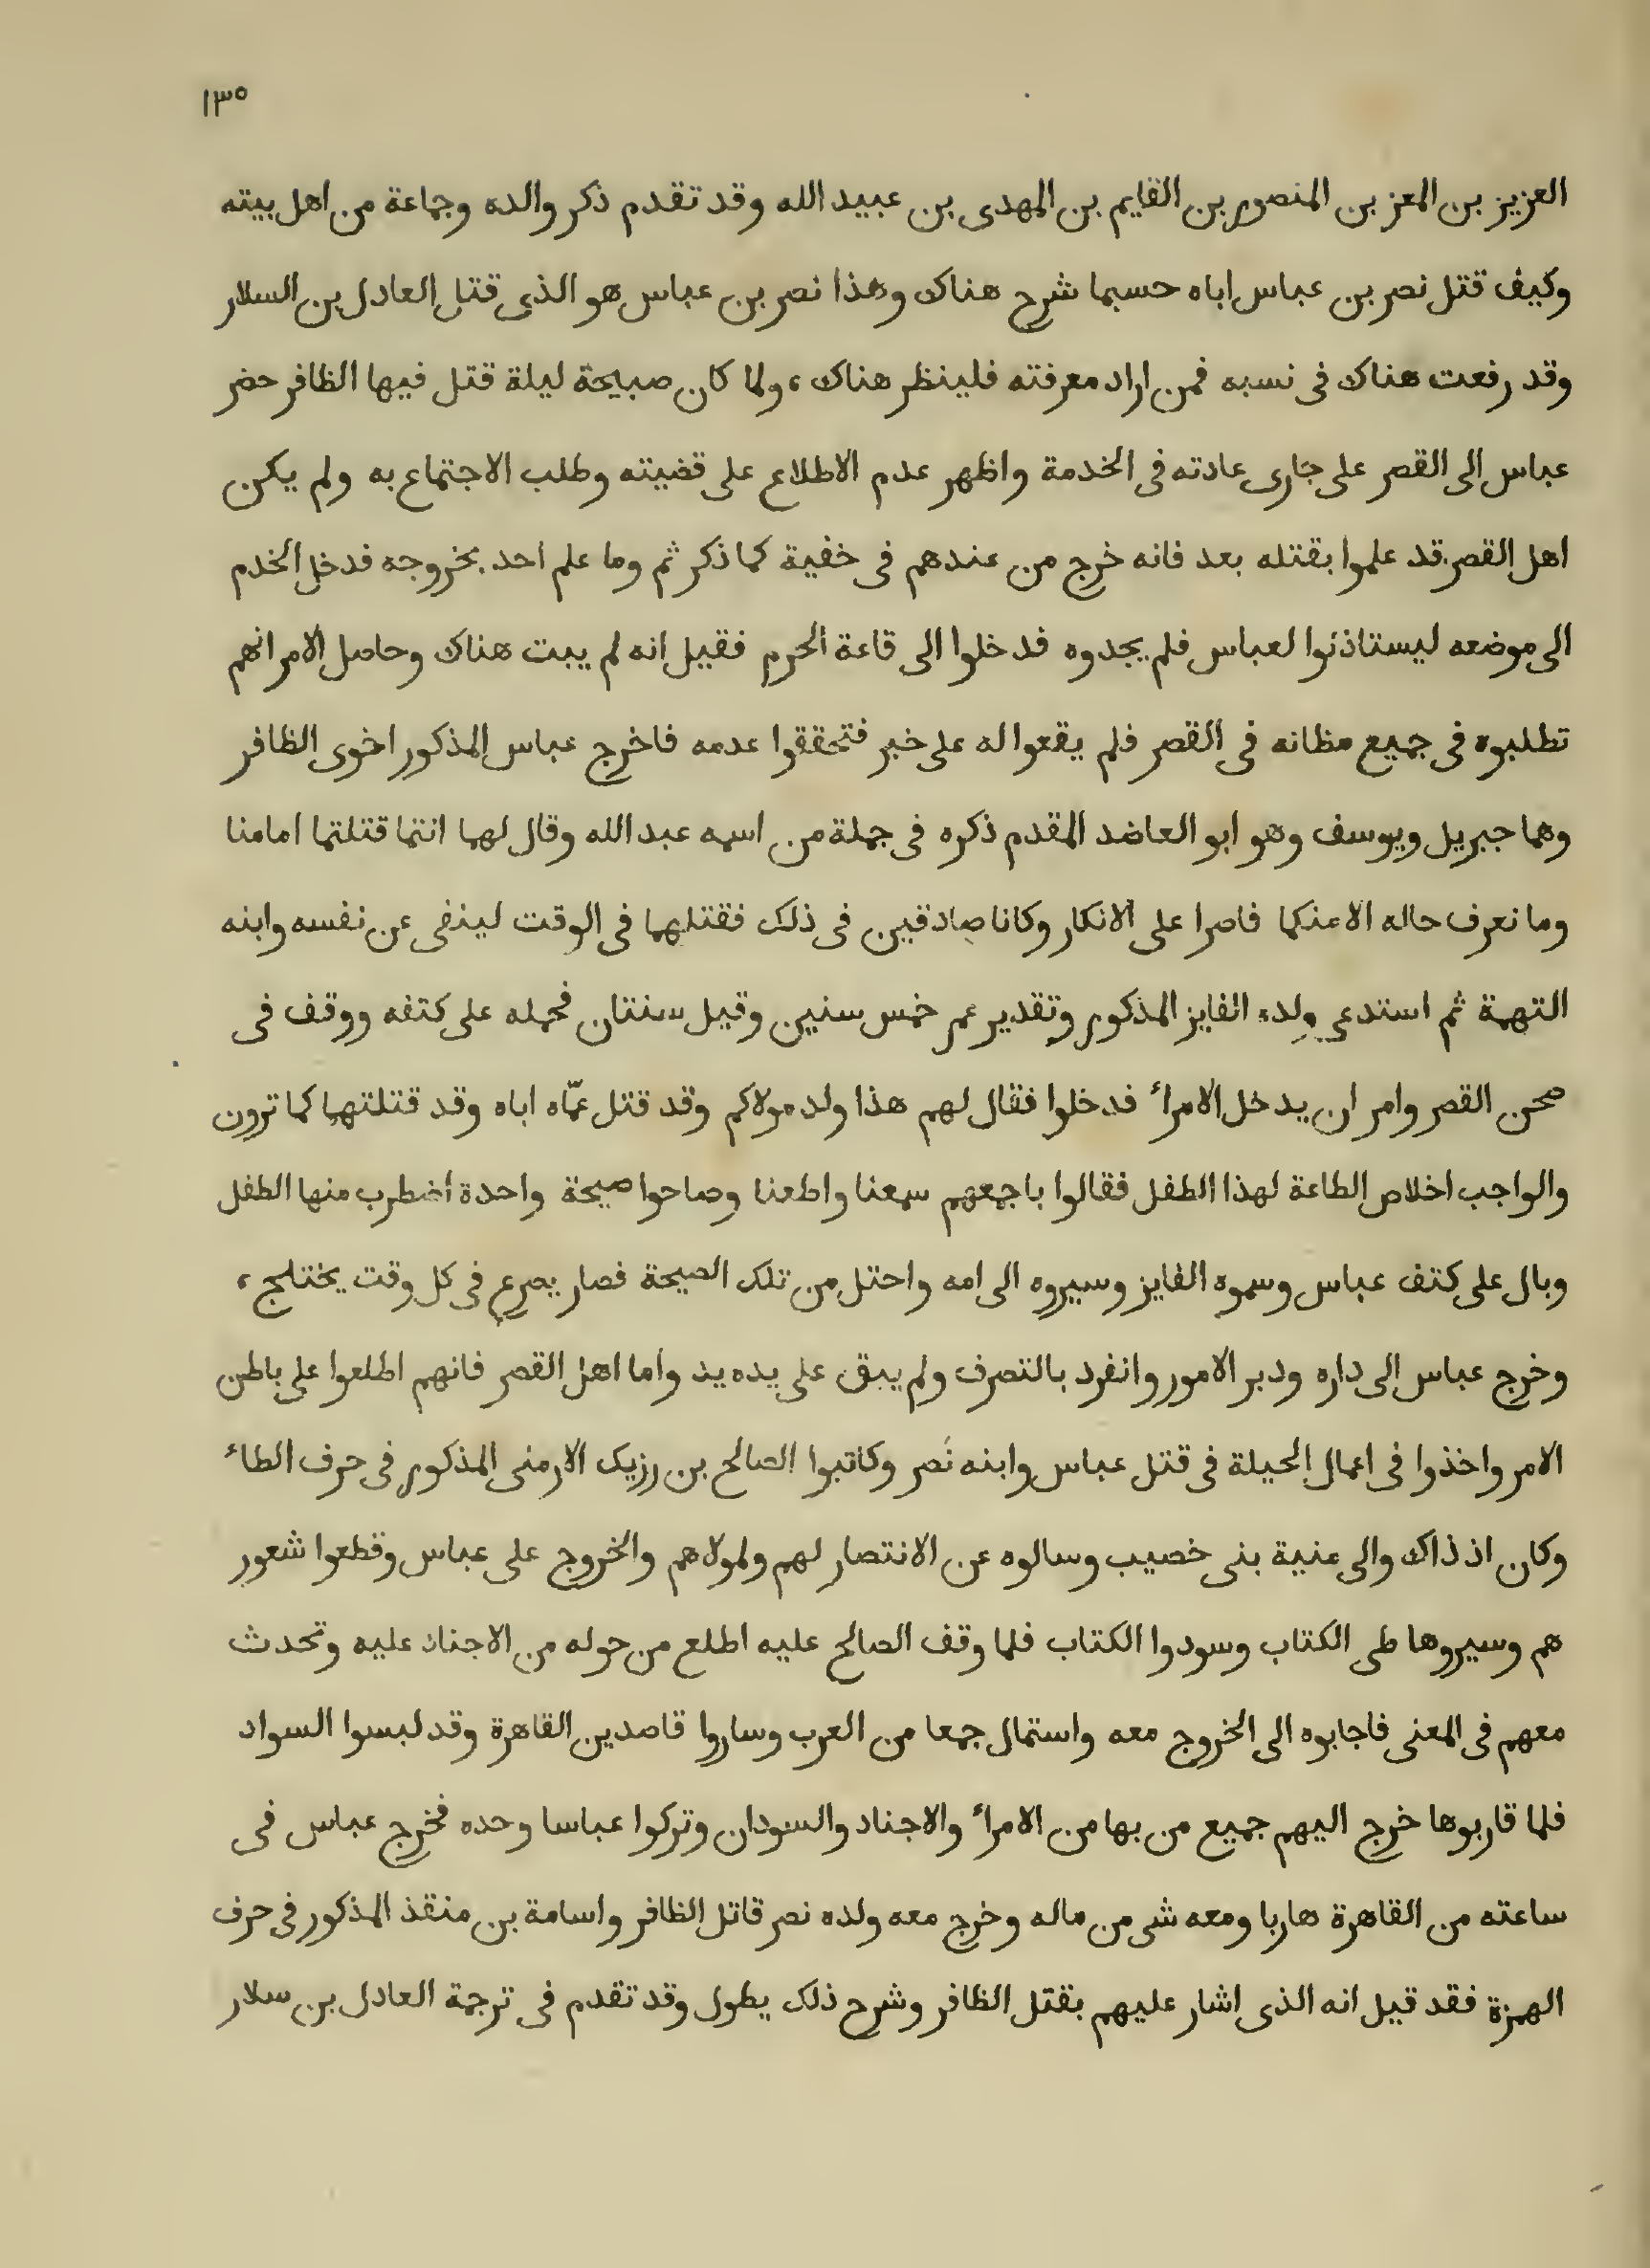 ١٣٥
العزيز بن المعز بن المنصور بن القايم بن المهدى بن عبيد الله وقد تقدم ذكر والده وجماعة من اهل بيته
وكيف قتل نصر بن عباس اباه حسبما شرح هناك وهذا نصر بن عباس هو الذى قتل العادل بن السلار
وقد رفعت هناك فى نسبه فمن اراد معرفته فلينظر هناك ، ولما كان صبيحة ليلة قتل فيها الظافر حضر
عباس الى القصر على جارى عادته فى الخدمة واظهر عدم الاطلاع على قضيته وطلب الاجتماع به ولم يكن
اهل القصر قد علموا بقتله بعد فانه خرج من عندهم فى خفية كما ذكر ثم وما علم احد بخروجه فدخل الخدم
الى موضعه ليستاذنوا لعباس فلم يجدوه فدخلوا الى قاعة الحرم فقيل انه لم يبت هناك وحاصل الامر انهم
تطلبوه فى جميع مظانه فى القصر فلم يقعوا له على خبر فتحققوا عدمه فاخرج عباس المذكور اخوى الظافر
وهما جبريل ويوسف وهو ابو العاضد المقدم ذكره فى جملة من اسمه عبد الله وقال لهما انتما قتلتما امامنا
وما نعرف حاله الا عنكما فاصرا على الانكار وكانا صادقين فى ذلك فقتلهما فى الوقت لينفى عن نفسه وابنه
التهمة ثم استدعى ولده الفايز المذكور وتقدير عمر خمس سنين وقيل سنتان فحمله على كتفه ووقف فى
صحن القصر وامر ان يدخل الامرأ فدخلوا فقال لهم هذا ولد مولاكم وقد قتل عمّاه اباه وقد قتلتهما كما ترون
والواجب اخلاص الطاعة لهذا الطفل فقالوا باجمعهم سمعنا واطعنا وصاحوا صيحة واحدة اضطرب منها الطفل
وبال على كتف عباس وسموه الفايز وسيروه الى امه واحتل من تلك الصيحة فصار يصرع فى كل وقت يختلج ،
وخرج عباس الى داره ودبر الامور وانفرد بالتصرف ولم يبق على يده يد واما اهل القصر فانهم اطلعوا على باطن
الامر واخذوا فى اعمال الحيلة فى قتل عباس وابنه نصر وكاتبوا الصالح بن رزيك الارمنى المذكور فى حرف الطاء
وكان اذ ذاك والى عنية بنى خصيب وسالوه عن الانتصار لهم ولمولاهم والخروج على عباس وقطعوا شعور
هم وسيروها طى الكتاب وسودوا الكتاب فلما وقف الصالح عليه اطلع من حوله من الاجناد عليه وتحدث
معهم فى المعنى فاجابوه الى الخروج معه واستمال جمعا من العرب وساروا قاصدين القاهرة وقد لبسوا السواد
فلما قاربوها خرج اليهم جميع من بها من الامرأ والاجناد والسودان وتركوا عباسا وحده فخرج عباس فى
ساعته من القاهرة هاربا ومعه شى من ماله وخرج معه ولده نصر قاتل الظافر واسامة بن منقذ المذكور فى حرف
الهمزة فقد قيل انه الذى اشار عليهم بقتل الظافر وشرح ذلك يطول وقد تقدم فى ترجمة العادل بن سلار